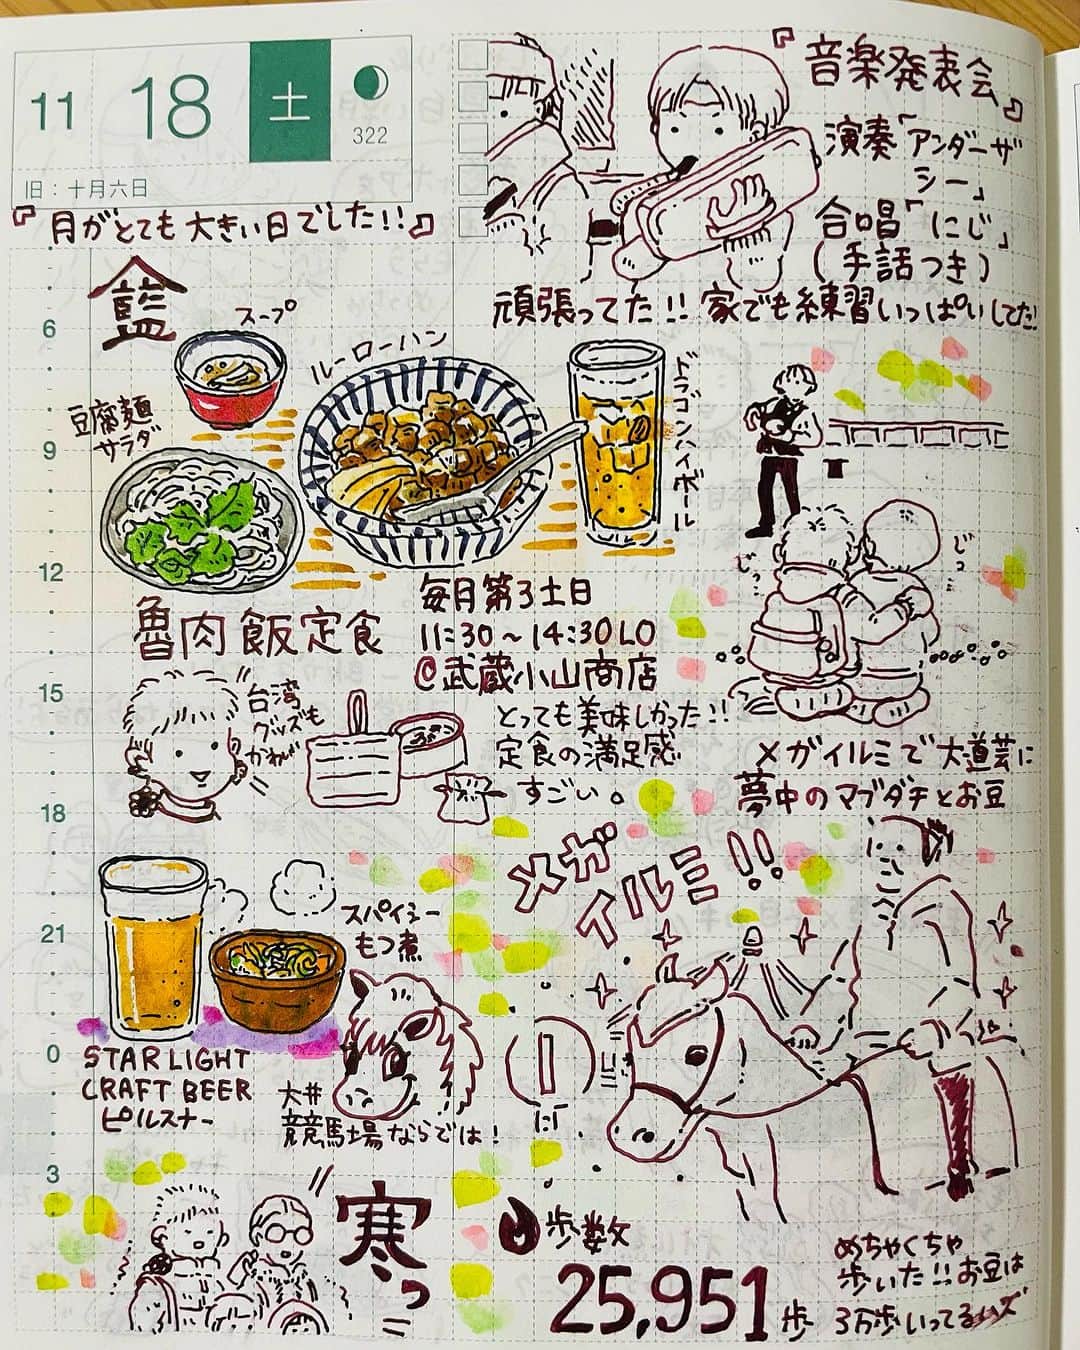 11 18 土
322
旧：十月六日
『月がとても大きい日でした!!』
『音楽発表会』
演奏「アンダーザ
シー」
合唱「にじ」
(手話つき)
頑張ってた!! 家でも練習いっぱいしてた!
6
9
12
15
18
21
0
3
藍
スープ
ルーローハン
ドラゴンハイボール
豆腐麺
サラダ
魯肉飯定食
毎月第3土日
11:30～14:30LO
@武蔵小山商店
とっても美味しかった!!
定食の満足感
すごい。
台湾
グッズも
かわい
じっ
じっ
メガイルミで大道芸に
夢中のマブダチとお豆
メガ
イルミ!!
スパイシー
もつ煮
STAR LIGHT
CRAFT BEER
ピルスナー
大井
競馬場ならでは!
寒っ
歩数
25,951歩
めちゃくちゃ
歩いた!! お豆は
3万歩いってるハズ